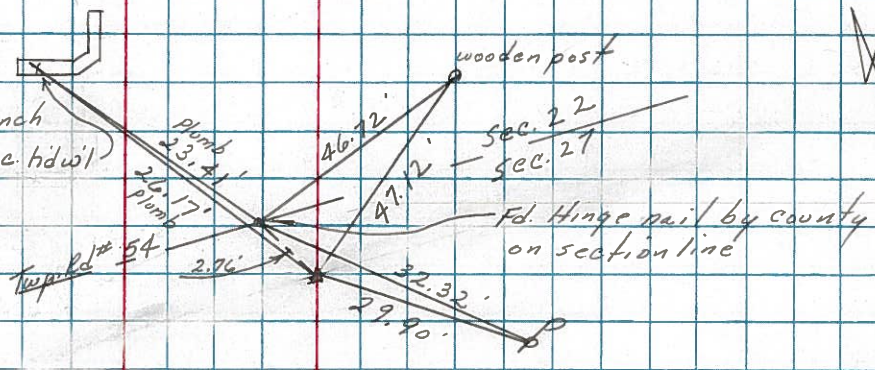 wooden post
nch
c. hdw'l
plumb
23.41'
26.17'
plumb
46.72'
47.12'
Sec. 22
Sec. 27
Fd. Hinge nail by county
on section line
Twp. Rd # 54
2.76'
32.32'
29.90'
P